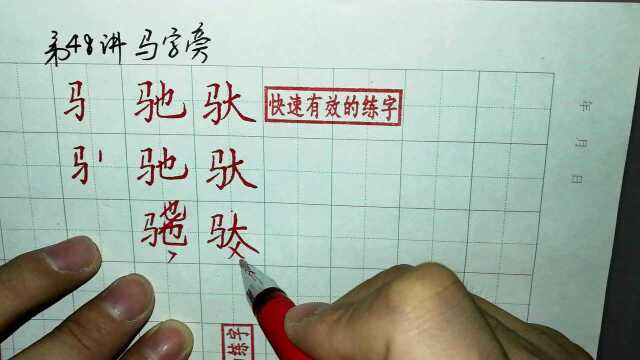 第48讲 马字旁
马 驰 驮 快速有效的练字
马 驰 驮
驰 驮
练字
年 月 日